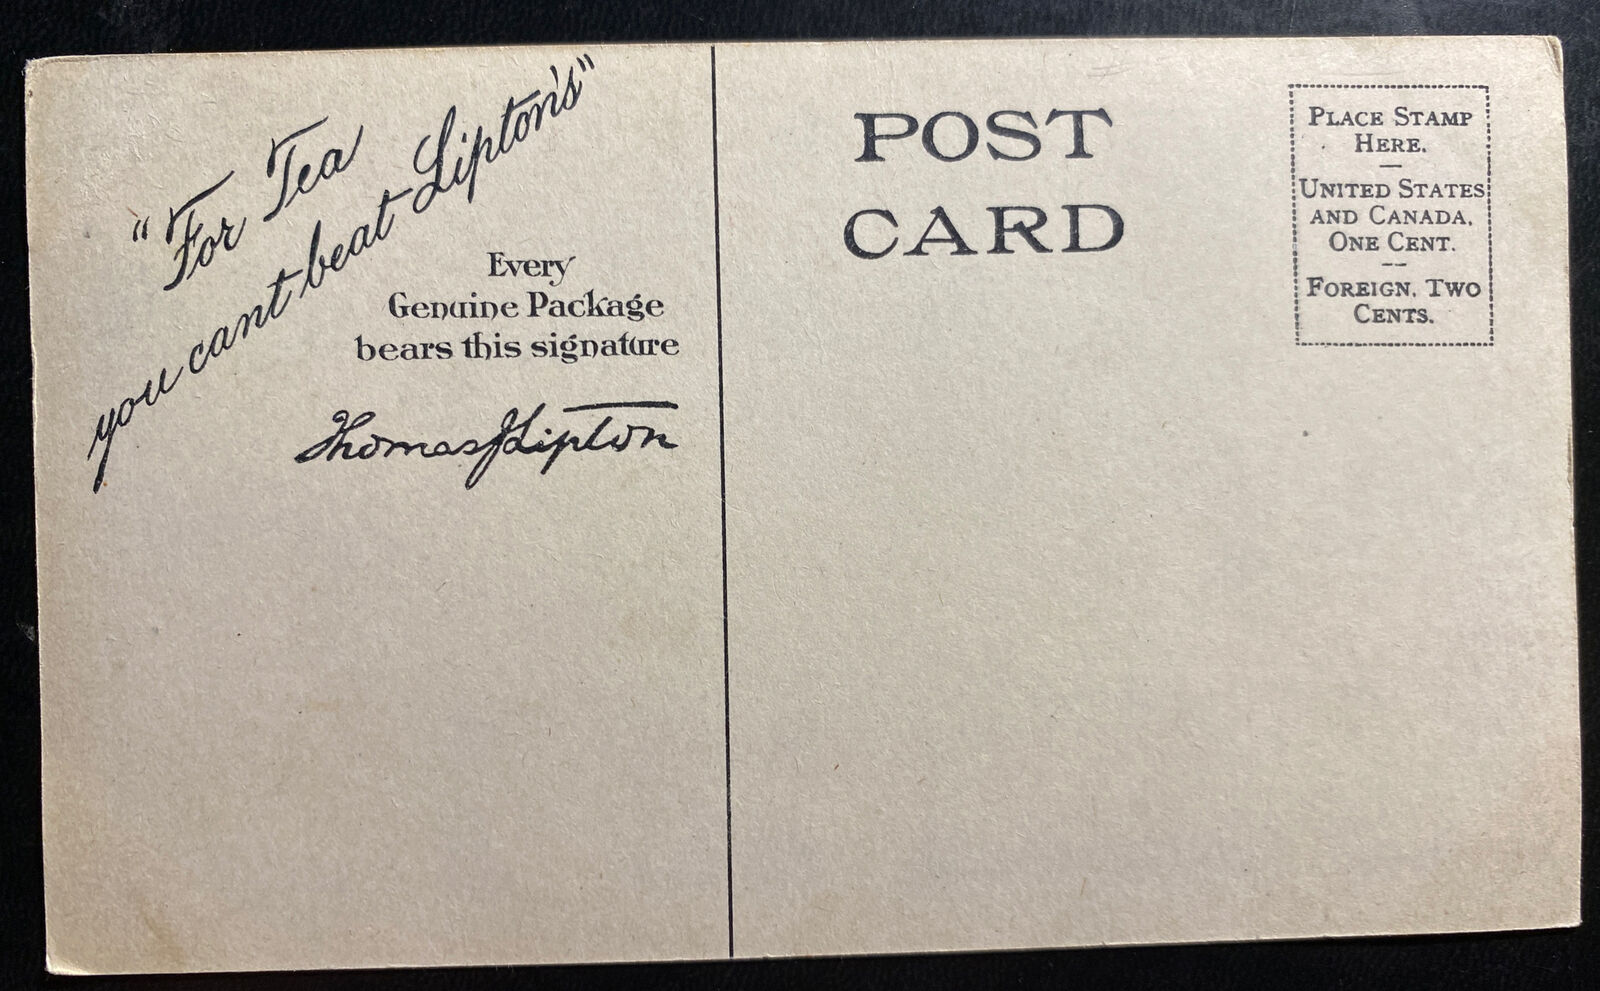 "For Tea
you cant beat Lipton's"
Every
Genuine Package
bears this signature
Thomas J Lipton
POST
CARD
PLACE STAMP
HERE.
UNITED STATES
AND CANADA.
ONE CENT.
FOREIGN. TWO
CENTS.